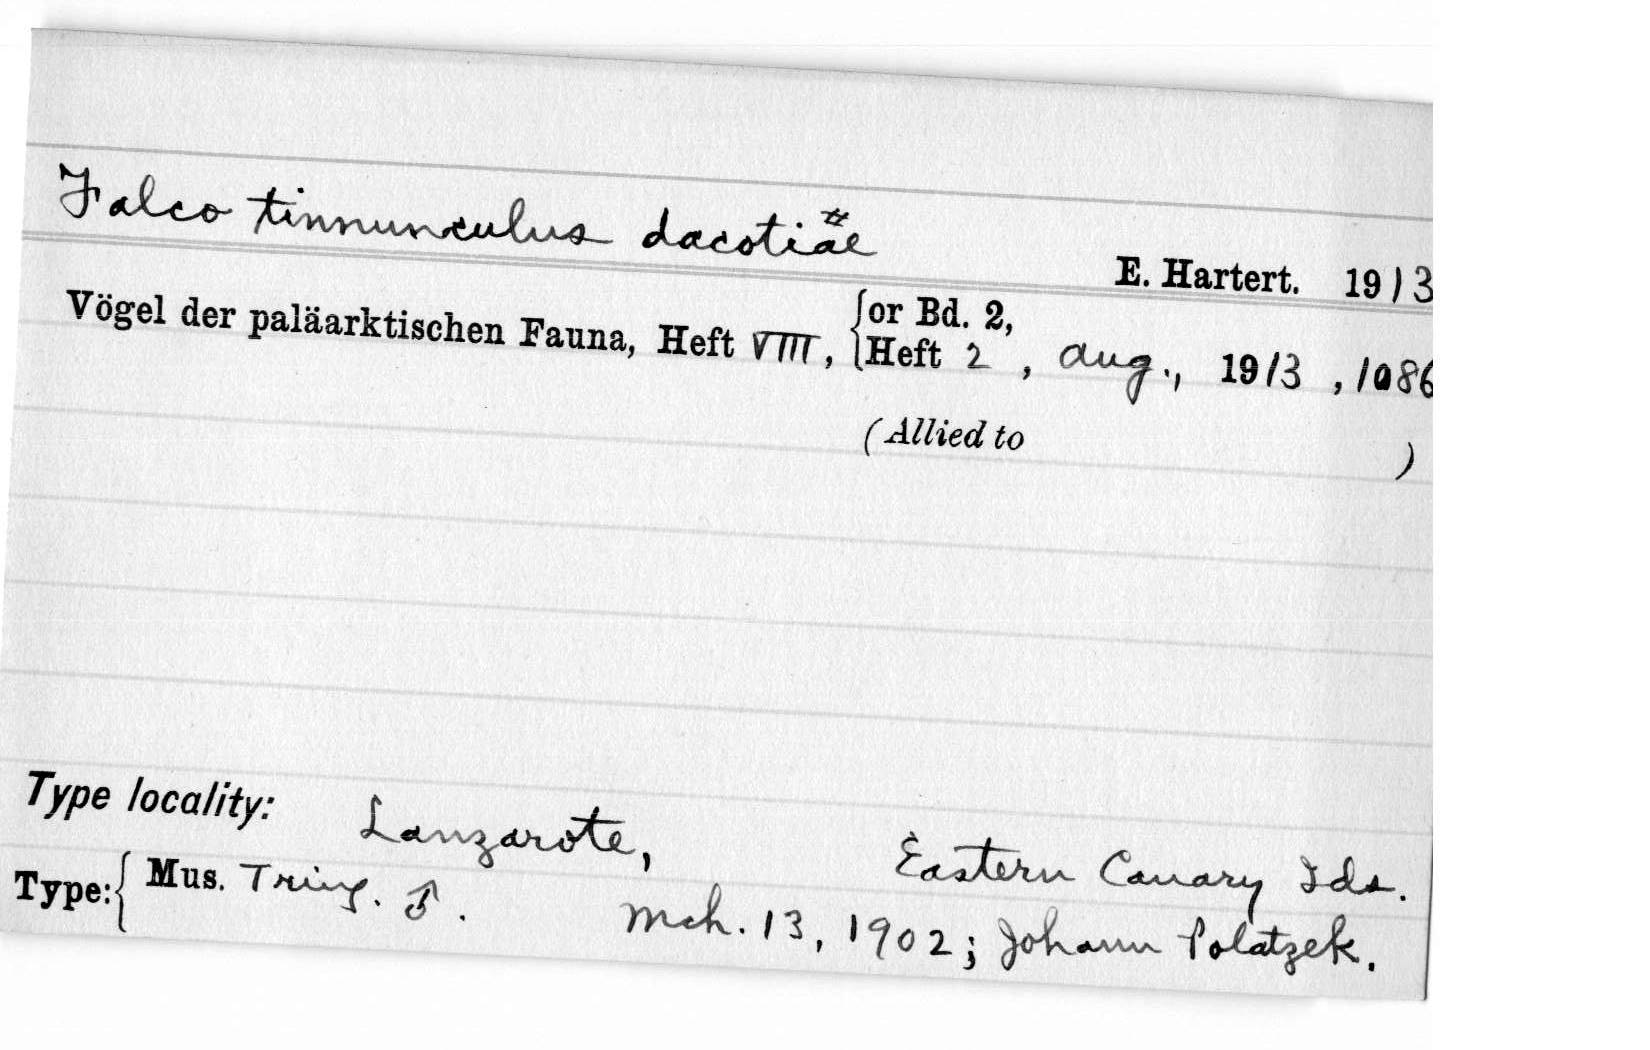 Falco tinnunculus dacotiae #
E. Hartert. 1913
Vögel der paläarktischen Fauna, Heft VIII, {or Bd. 2,
{Heft 2, Aug., 1913, 1086
(Allied to )
Type locality: Lanzarote, Eastern Canary Ids.
Type: { Mus. Tring. ♂. Mch. 13, 1902; Johann Polatzek.